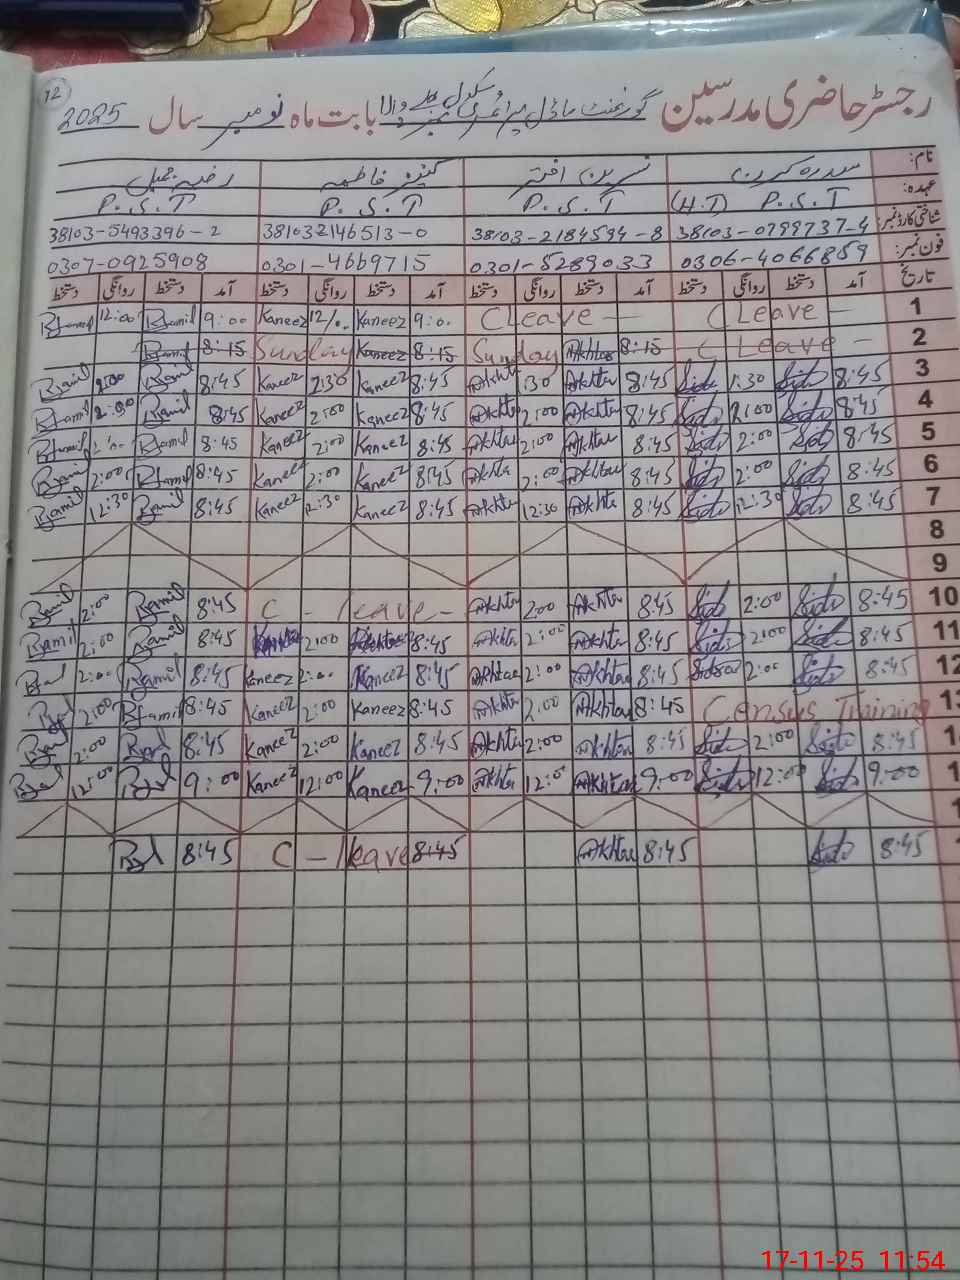 12
رجسٹر حاضری مدرسین گورنمنٹ ماڈل پرائمری سکول نمبر والا بابت ماہ نومبر سال 2025
نام: سدرہ کرن نسرین اختر کنیز فاطمہ رضیہ جمیل
عہدہ: P.S.T (H.T) P.S.T P.S.T P.S.T
شناختی کارڈ نمبر: 38103-0799737-4 38103-2184594-8 381032146513-0 38103-5493396-2
فون نمبر: 0306-4066859 0301-5289033 0301-4669715 0307-0925908
تاریخ آمد دستخط روانگی دستخط آمد دستخط روانگی دستخط آمد دستخط روانگی دستخط آمد دستخط روانگی دستخط
1 C Leave C Leave 9:00 Kaneez 12/.. Kaneez 9:00 Bjamil 12:00 Bjamil
2 C Leave 8:15 Akhtar Sunday 8:15 Kaneez Sunday 8:15 Bjamil
3 8:45 Sidr 1:30 Sidr 8:45 Akhtar :30 Akhtar 8:45 Kaneez 1:30 Kaneez 8:45 Bjamil 2:00 Bjamil
4 8:45 Sidr 2:00 Sidr 8:45 Akhtar 2:00 Akhtar 8:45 Kaneez 2:00 Kaneez 8:45 Bjamil 2:00 Bjamil
5 8:45 Sidr 2:00 Sidr 8:45 Akhtar 2:00 Akhtar 8:45 Kaneez 2:00 Kaneez 8:45 Bjamil Bjamil
6 8:45 Sidr 2:00 Sidr 8:45 Akhtar 2:00 Akhtar 8:45 Kaneez 2:00 Kaneez 8:45 Bjamil 2:00 Bjamil
7 8:45 Sidr 12:30 Sidr 8:45 Akhtar 12:30 Akhtar 8:45 Kaneez 12:30 Kaneez 8:45 Bjamil 12:30 Bjamil
8
9
10 8:45 Sidr 2:00 Sidr 8:45 Akhtar 2:00 Akhtar C - leave - 8:45 Bjamil 2:00 Bjamil
11 8:45 Sidr 2:00 Sidr 8:45 Akhtar 2:00 Akhtar 8:45 2:00 8:45 Bjamil 2:00 Bjamil
12 8:45 Sidr 2:00 8:45 Akhtar 2:00 Akhtar 8:45 Kaneez 2:00 Kaneez 8:45 Bjamil 2:00
13 Census Training 8:45 Akhtar 2:00 Akhtar 8:45 Kaneez 2:00 Kaneez 8:45 Bjamil 2:00
1 8:45 Sidr 2:00 Sidr 8:45 Akhtar 2:00 Akhtar 8:45 Kaneez 2:00 Kaneez 8:45 2:00
1 9:00 Sidr 12:00 Sidr 9:00 Akhtar 12:00 Akhtar 9:00 Kaneez 12:00 Kaneez 9:00 12:00
1
8:45 Sidr 8:45 Akhtar 8:45 C - leave 8:45
17-11-25 11:54